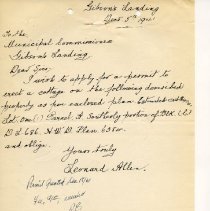 Gibson's Landing
Sept 5th 1941
To the
Municipal Commissioner
Gibson's Landing
Dear Sir:
I wish to apply for a permit to
erect a cottage on the following described
property as per enclosed plan
Lot One (1) Parcel A Southerly portion of Blk (6)
D.L. 686 N.W.D. Plan
and oblige.
Yours truly
Leonard Allen.
Permit Granted